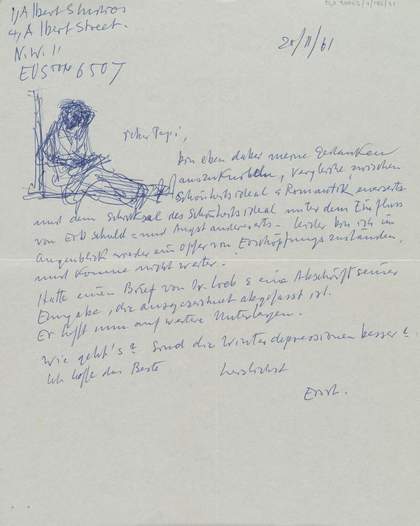 1, Albert Studios
4, A Albert Street.
N.W. 11
EUSTON 6507
20/11/61
Lieber Papi,
bin eben dabei meine Gedanken
auszuknobeln, Vergleiche zwischen
Schönheitsideal & Romantik einerseits
und dem Schicksal des Schönheitsideal unter dem Einfluss
von Erbschuld = und Angst andererseits — leider bin ich im
Augenblick wieder ein Opfer von Erschöpfungszuständen,
und komme nicht weiter.
Hatte einen Brief von Dr. Loeb & eine Abschrift seiner
Eingabe, die ausgezeichnet abgefasst ist.
Er hofft nun auf weitere Unterlagen.
Wie geht's? Sind die Winterdepressionen besser?
Ich hoffe das Beste
herzlichst